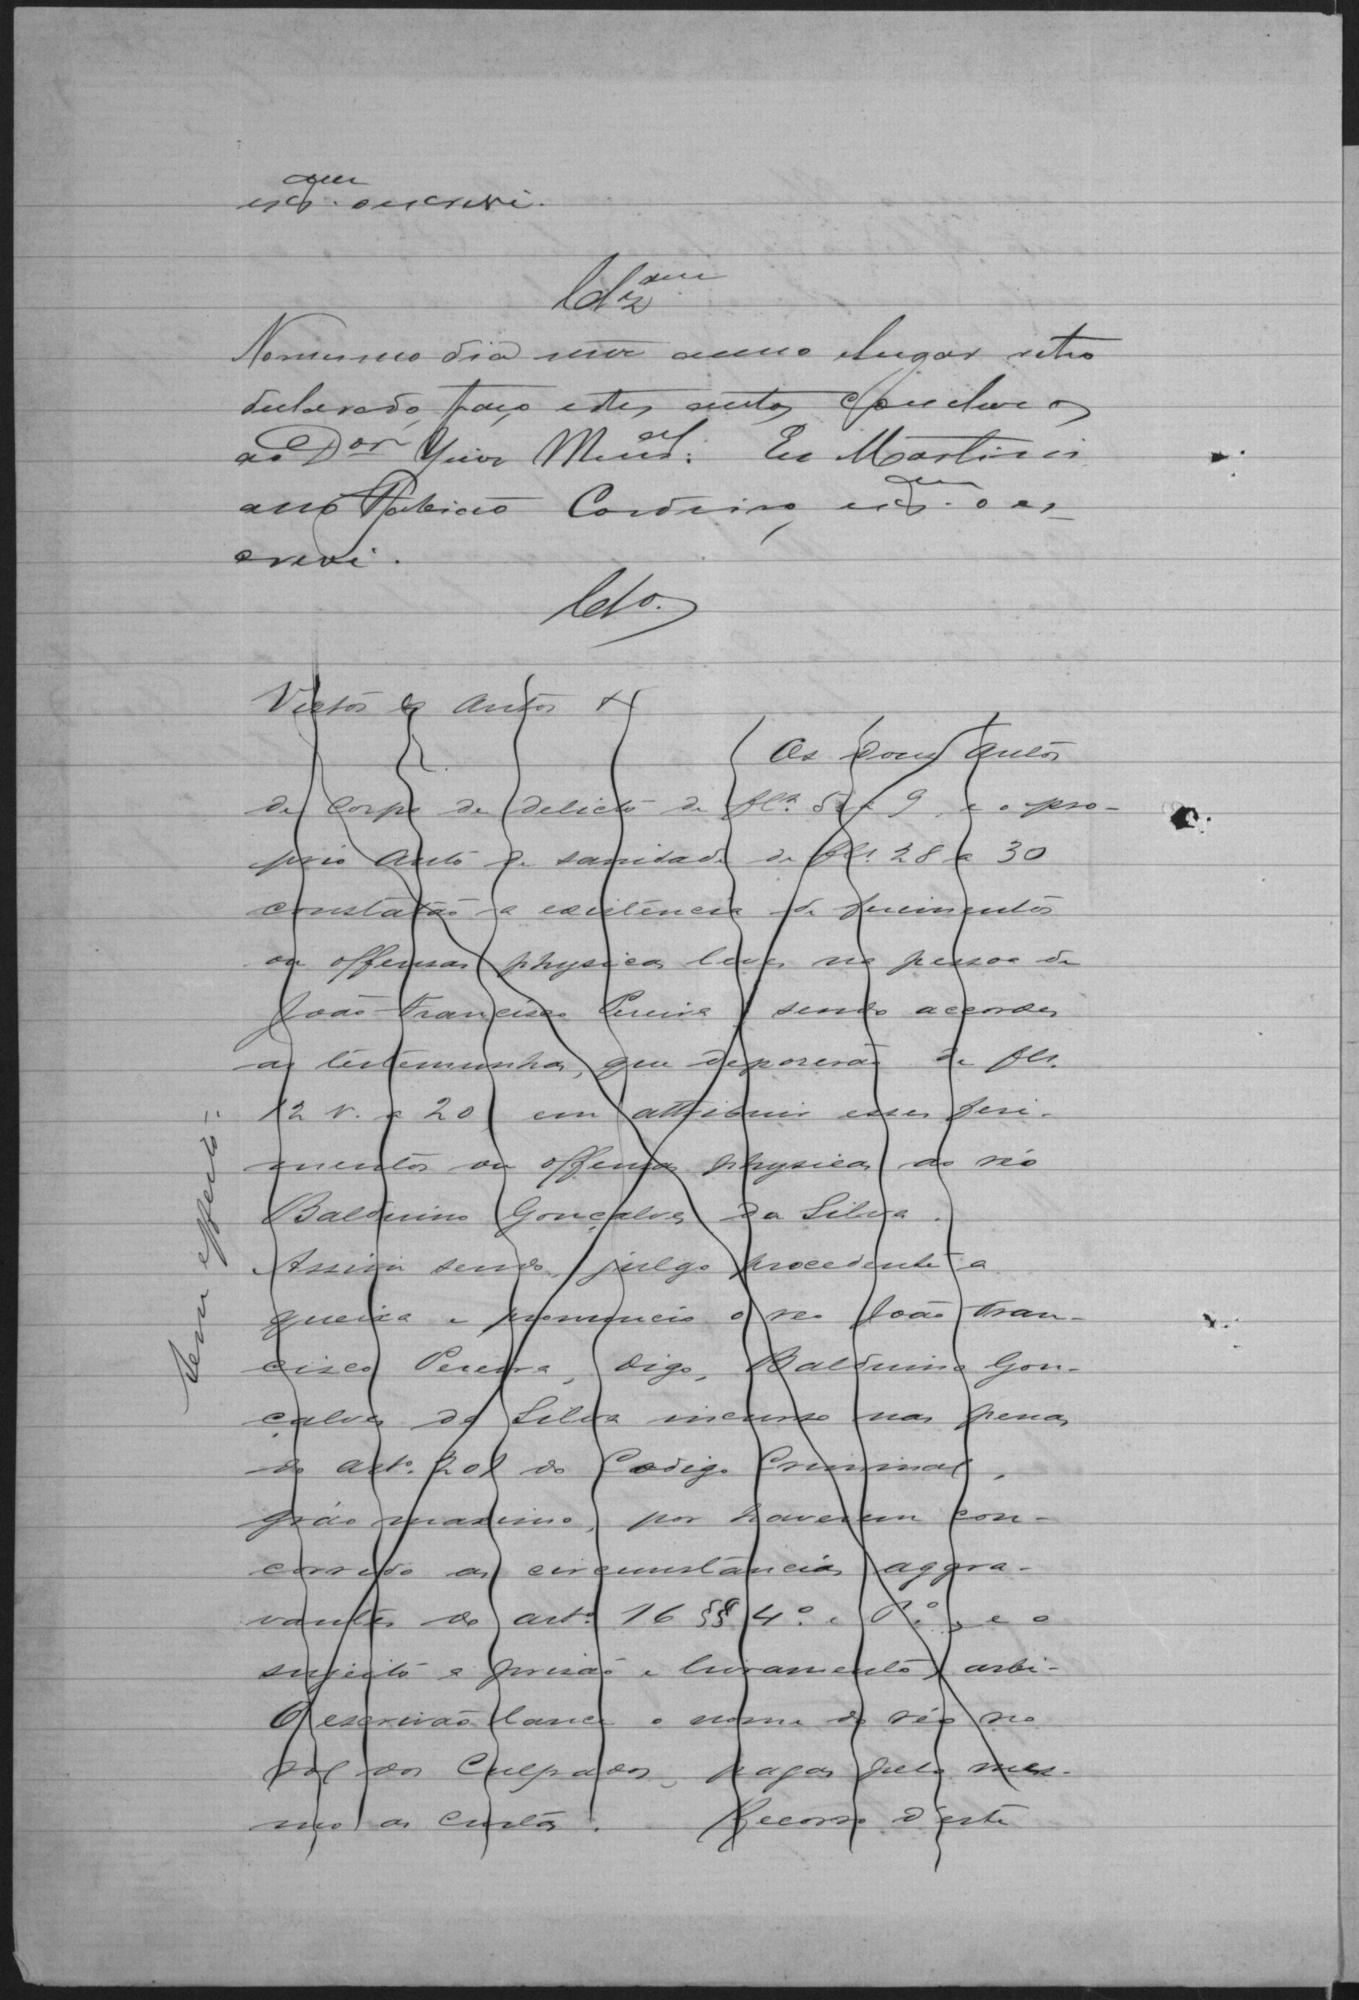 esc.am o escrevi.
Clzam
No mesmo dia mez anno e lugar retro
declarado, faço estes autos conclusos
ao Dor Juiz Munal. Eu Martini
ano Cordeiro, escam. o es_
crevi.
Clo.
Vistos os autos &
Os dous autos
de corpo de delicto de fls. 5 e 9, e o pro-
prio auto de sanidade de fls. 28 a 30
constatão a existencia de ferimentos
ou offensas physicas leves na pessoa de
João Francisco Pereira, sendo accordes
as testemunhas, que deporerão de fls.
12 v. a 20 em attribuir esses feri-
mentos ou offensas physicas ao réo
Balduino Gonçalves da Silva.
Assim sendo, julgo procedente a
queixa e pronuncio o reo João Fran-
cisco Pereira, digo, Balduino Gon-
çalves da Silva incurso nas penas
do arto. 201 do Codigo Criminal,
gráo maximo, por haverem con-
corrido as circumstancias aggra-
vantes do arto. 16 §§ 4º. e 6º., e o
sujeito a prisão e livramento, arbi-
O escrivão lance o nome do réo no
rol dos culpados, pagas pelo mes-
mo as custas. Recorro d'este
Sem effeito-